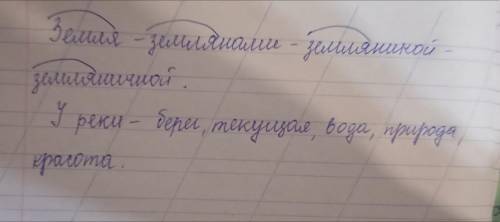 Земля - землянами - земляникой -
земляничной.
У реки - берег, текущая, вода, природа,
красота.